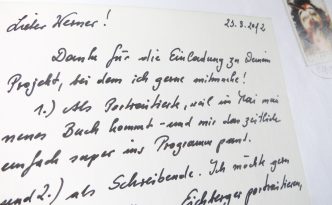 Lieber Werner! 23.3.2012
Danke für die Einladung zu Deinem
Projekt, bei dem ich gerne mitmache!
1.) Als Portraitierte, weil im Mai mein
neues Buch kommt - und mir das zeitlich
einfach super ins Programm passt.
und 2.) als Schreibende. Ich möchte gern
Eichberger portraitieren,